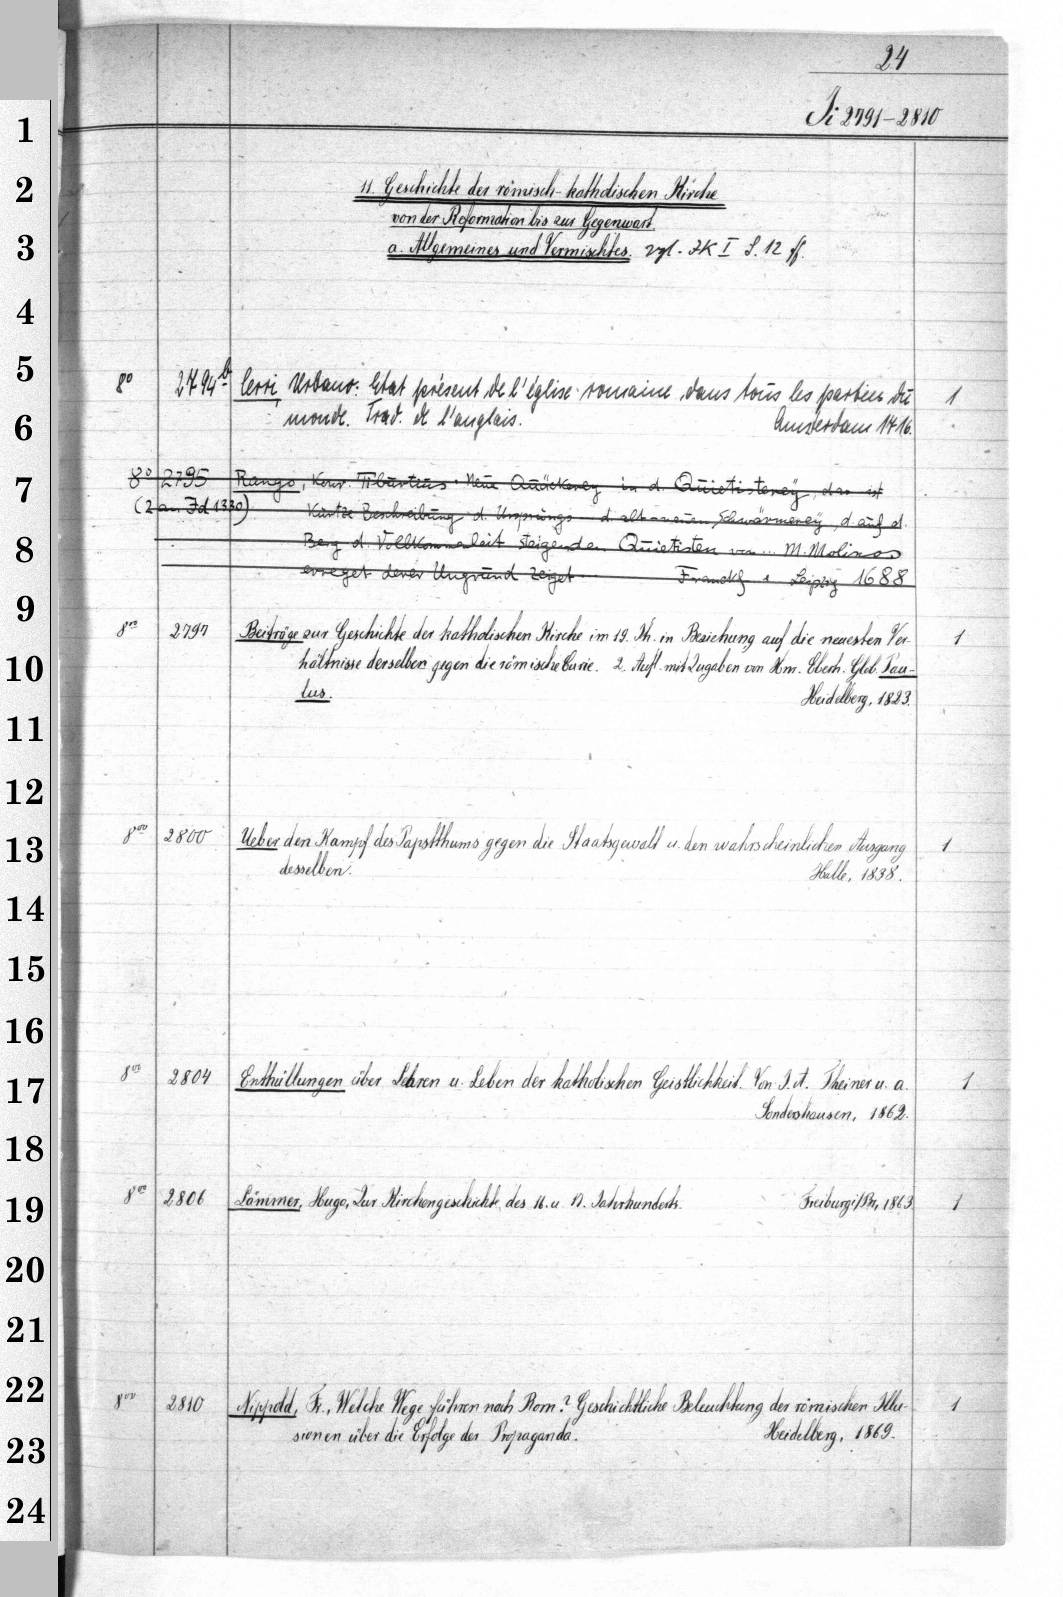 24
Ji 2791-2810
1
2
3
4
5
6
7
8
9
10
11
12
13
14
15
16
17
18
19
20
21
22
23
24
11. Geschichte der römisch-katholischen Kirche
von der Reformation bis zur Gegenwart.
a. Allgemeines und Vermischtes. vgl. JK I S. 12 ff.
8° 2794b Cerri, Urbano: Etat présent de l'église romaine dans tous les parties du 1
monde. Trad. de l'anglais. Amsterdam 1716.
8° 2795 Rango, Konr. Tiburtius: Neue Quäckerey in d. Quietisterey, das ist
(2 an Jd 1330) Kurtze Beschreibung d. Ursprungs d. alt-neuen Schwärmerey, d. auf d.
Berg d. Vollkommenheit steigenden Quietisten von ... M. Molinos
erreget derer Ungrund zeiget Franckf. u. Leipzig 1688
8vo 2797 Beiträge zur Geschichte der katholischen Kirche im 19. Jh. in Beziehung auf die neuesten Ver- 1
hältnisse derselben gegen die römische Curie. 2. Aufl. mit Zugaben von Hrn. Eberh. Glob. Pau-
lus. Heidelberg, 1823.
8vo 2800 Ueber den Kampf des Papstthums gegen die Staatsgewalt u. den wahrscheinlichen Ausgang 1
desselben. Halle, 1838.
8vo 2804 Enthüllungen über Lehren u. Leben der katholischen Geistlichkeit. Von J. A. Theiner u. a. 1
Sondershausen, 1862.
8vo 2806 Lämmer, Hugo, Zur Kirchengeschichte des 16. u. 17. Jahrhunderts. Freiburg i/Br., 1863 1
8vo 2810 Nippold, Fr., Welche Wege führen nach Rom? Geschichtliche Beleuchtung der römischen Illu- 1
sionen über die Erfolge der Propaganda. Heidelberg, 1869.